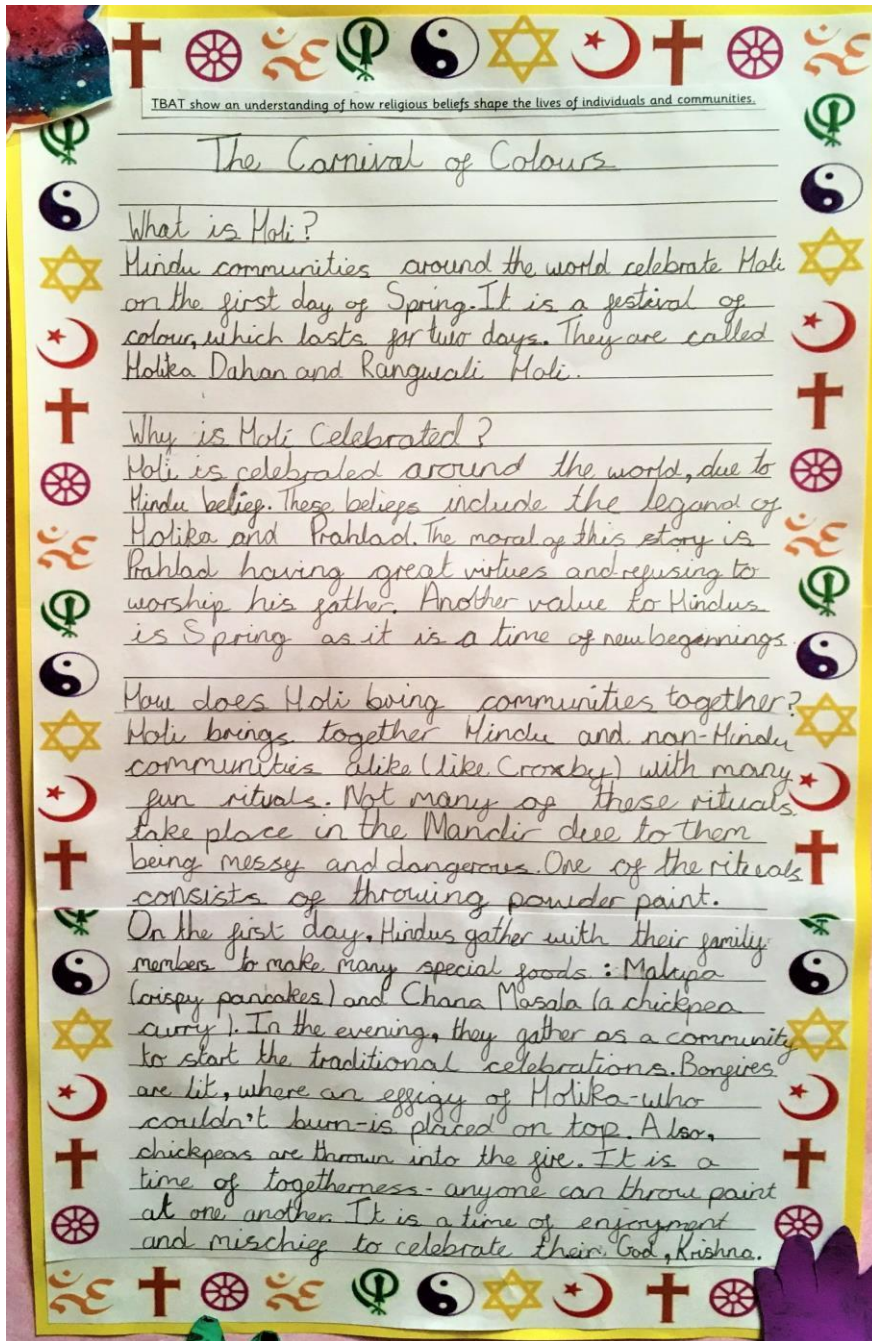 TBAT show an understanding of how religious beliefs shape the lives of individuals and communities.
The Carnival of Colours
What is Holi?
Hindu communities around the world celebrate Holi
on the first day of Spring. It is a festival of
colour, which lasts for two days. They are called
Holika Dahan and Rangwali Holi.
Why is Holi Celebrated?
Holi is celebrated around the world, due to
Hindu belief. These beliefs include the legand of
Holika and Prahlad. The moral of this story is
Prahlad having great virtues and refusing to
worship his father. Another value to Hindus
is Spring as it is a time of new beginnings.
How does Holi bring communities together?
Holi brings together Hindu and non-Hindu
communities alike (like Croxby) with many
fun rituals. Not many of these rituals
take place in the Mandir due to them
being messy and dangerous. One of the rituals
consists of throwing powder paint.
On the first day, Hindus gather with their family
members to make many special foods: Malupa
(crispy pancakes) and Chana Masala (a chickpea
curry). In the evening, they gather as a community
to start the traditional celebrations. Bonfires
are lit, where an effigy of Holika-who
couldn't burn-is placed on top. Also,
chickpeas are thrown into the fire. It is a
time of togetherness - anyone can throw paint
at one another. It is a time of enjoyment
and mischief to celebrate their God, Krishna.